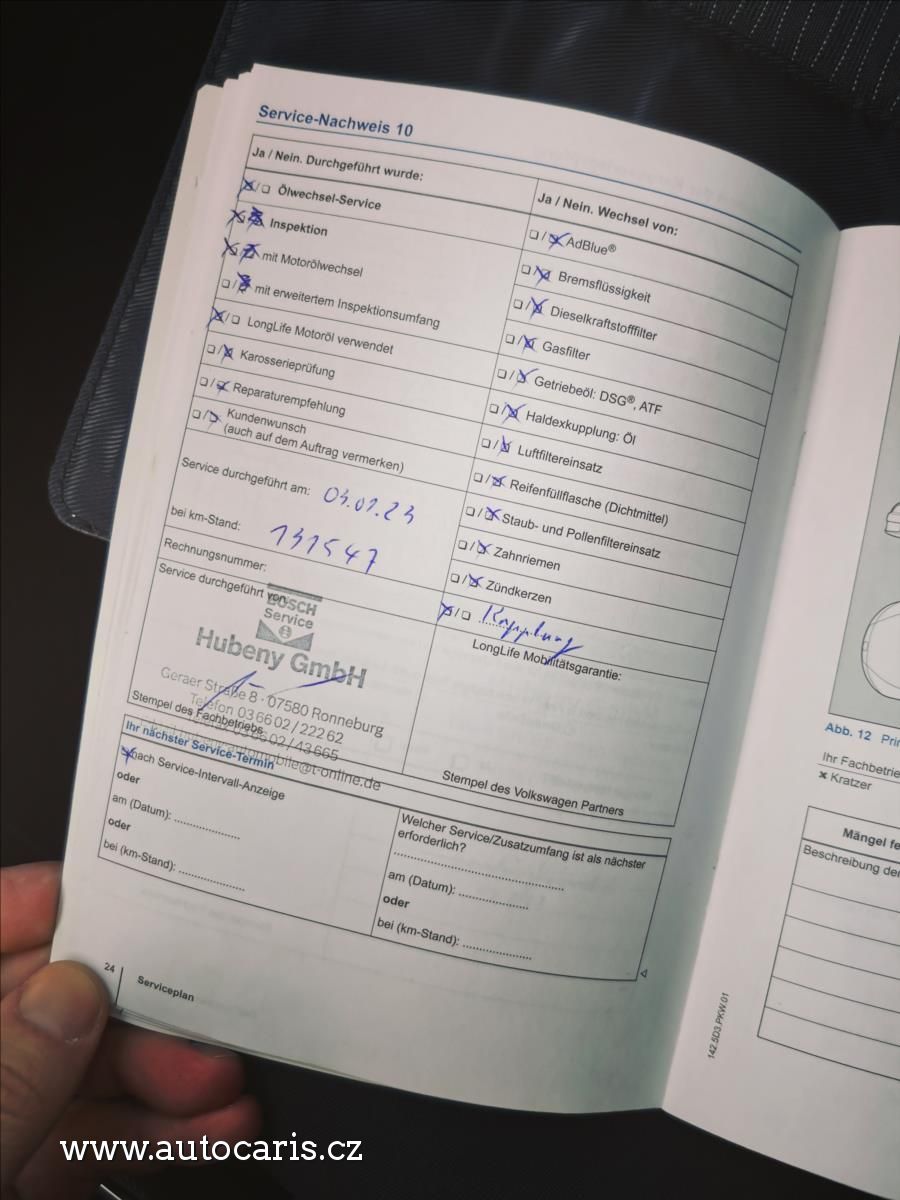 Service-Nachweis 10
Ja / Nein. Durchgeführt wurde:
Ölwechsel-Service
Inspektion
mit Motorölwechsel
mit erweitertem Inspektionsumfang
LongLife Motoröl verwendet
Karosserieprüfung
Reparaturempfehlung
Kundenwunsch
(auch auf dem Auftrag vermerken)
Service durchgeführt am: 03.01.23
bei km-Stand: 131547
Rechnungsnummer:
Service durchgeführt von:
BOSCH
Service
Hubeny GmbH
Geraer Straße 8 · 07580 Ronneburg
Telefon 03 66 02 / 222 62
Telefax 03 66 02 / 43 665
automobile@t-online.de
Stempel des Fachbetriebs
Ja / Nein. Wechsel von:
AdBlue®
Bremsflüssigkeit
Dieselkraftstofffilter
Gasfilter
Getriebeöl: DSG®, ATF
Haldexkupplung: Öl
Luftfiltereinsatz
Reifenfüllflasche (Dichtmittel)
Staub- und Pollenfiltereinsatz
Zahnriemen
Zündkerzen
Kupplung
LongLife Mobilitätsgarantie:
Stempel des Volkswagen Partners
Ihr nächster Service-Termin
nach Service-Intervall-Anzeige
oder
am (Datum):
oder
bei (km-Stand):
Welcher Service/Zusatzumfang ist als nächster
erforderlich?
am (Datum):
oder
bei (km-Stand):
24
Serviceplan
142.5D3.PKW.01
Abb. 12 Prin
Ihr Fachbetrie
× Kratzer
Mängel fe
Beschreibung der
www.autocaris.cz